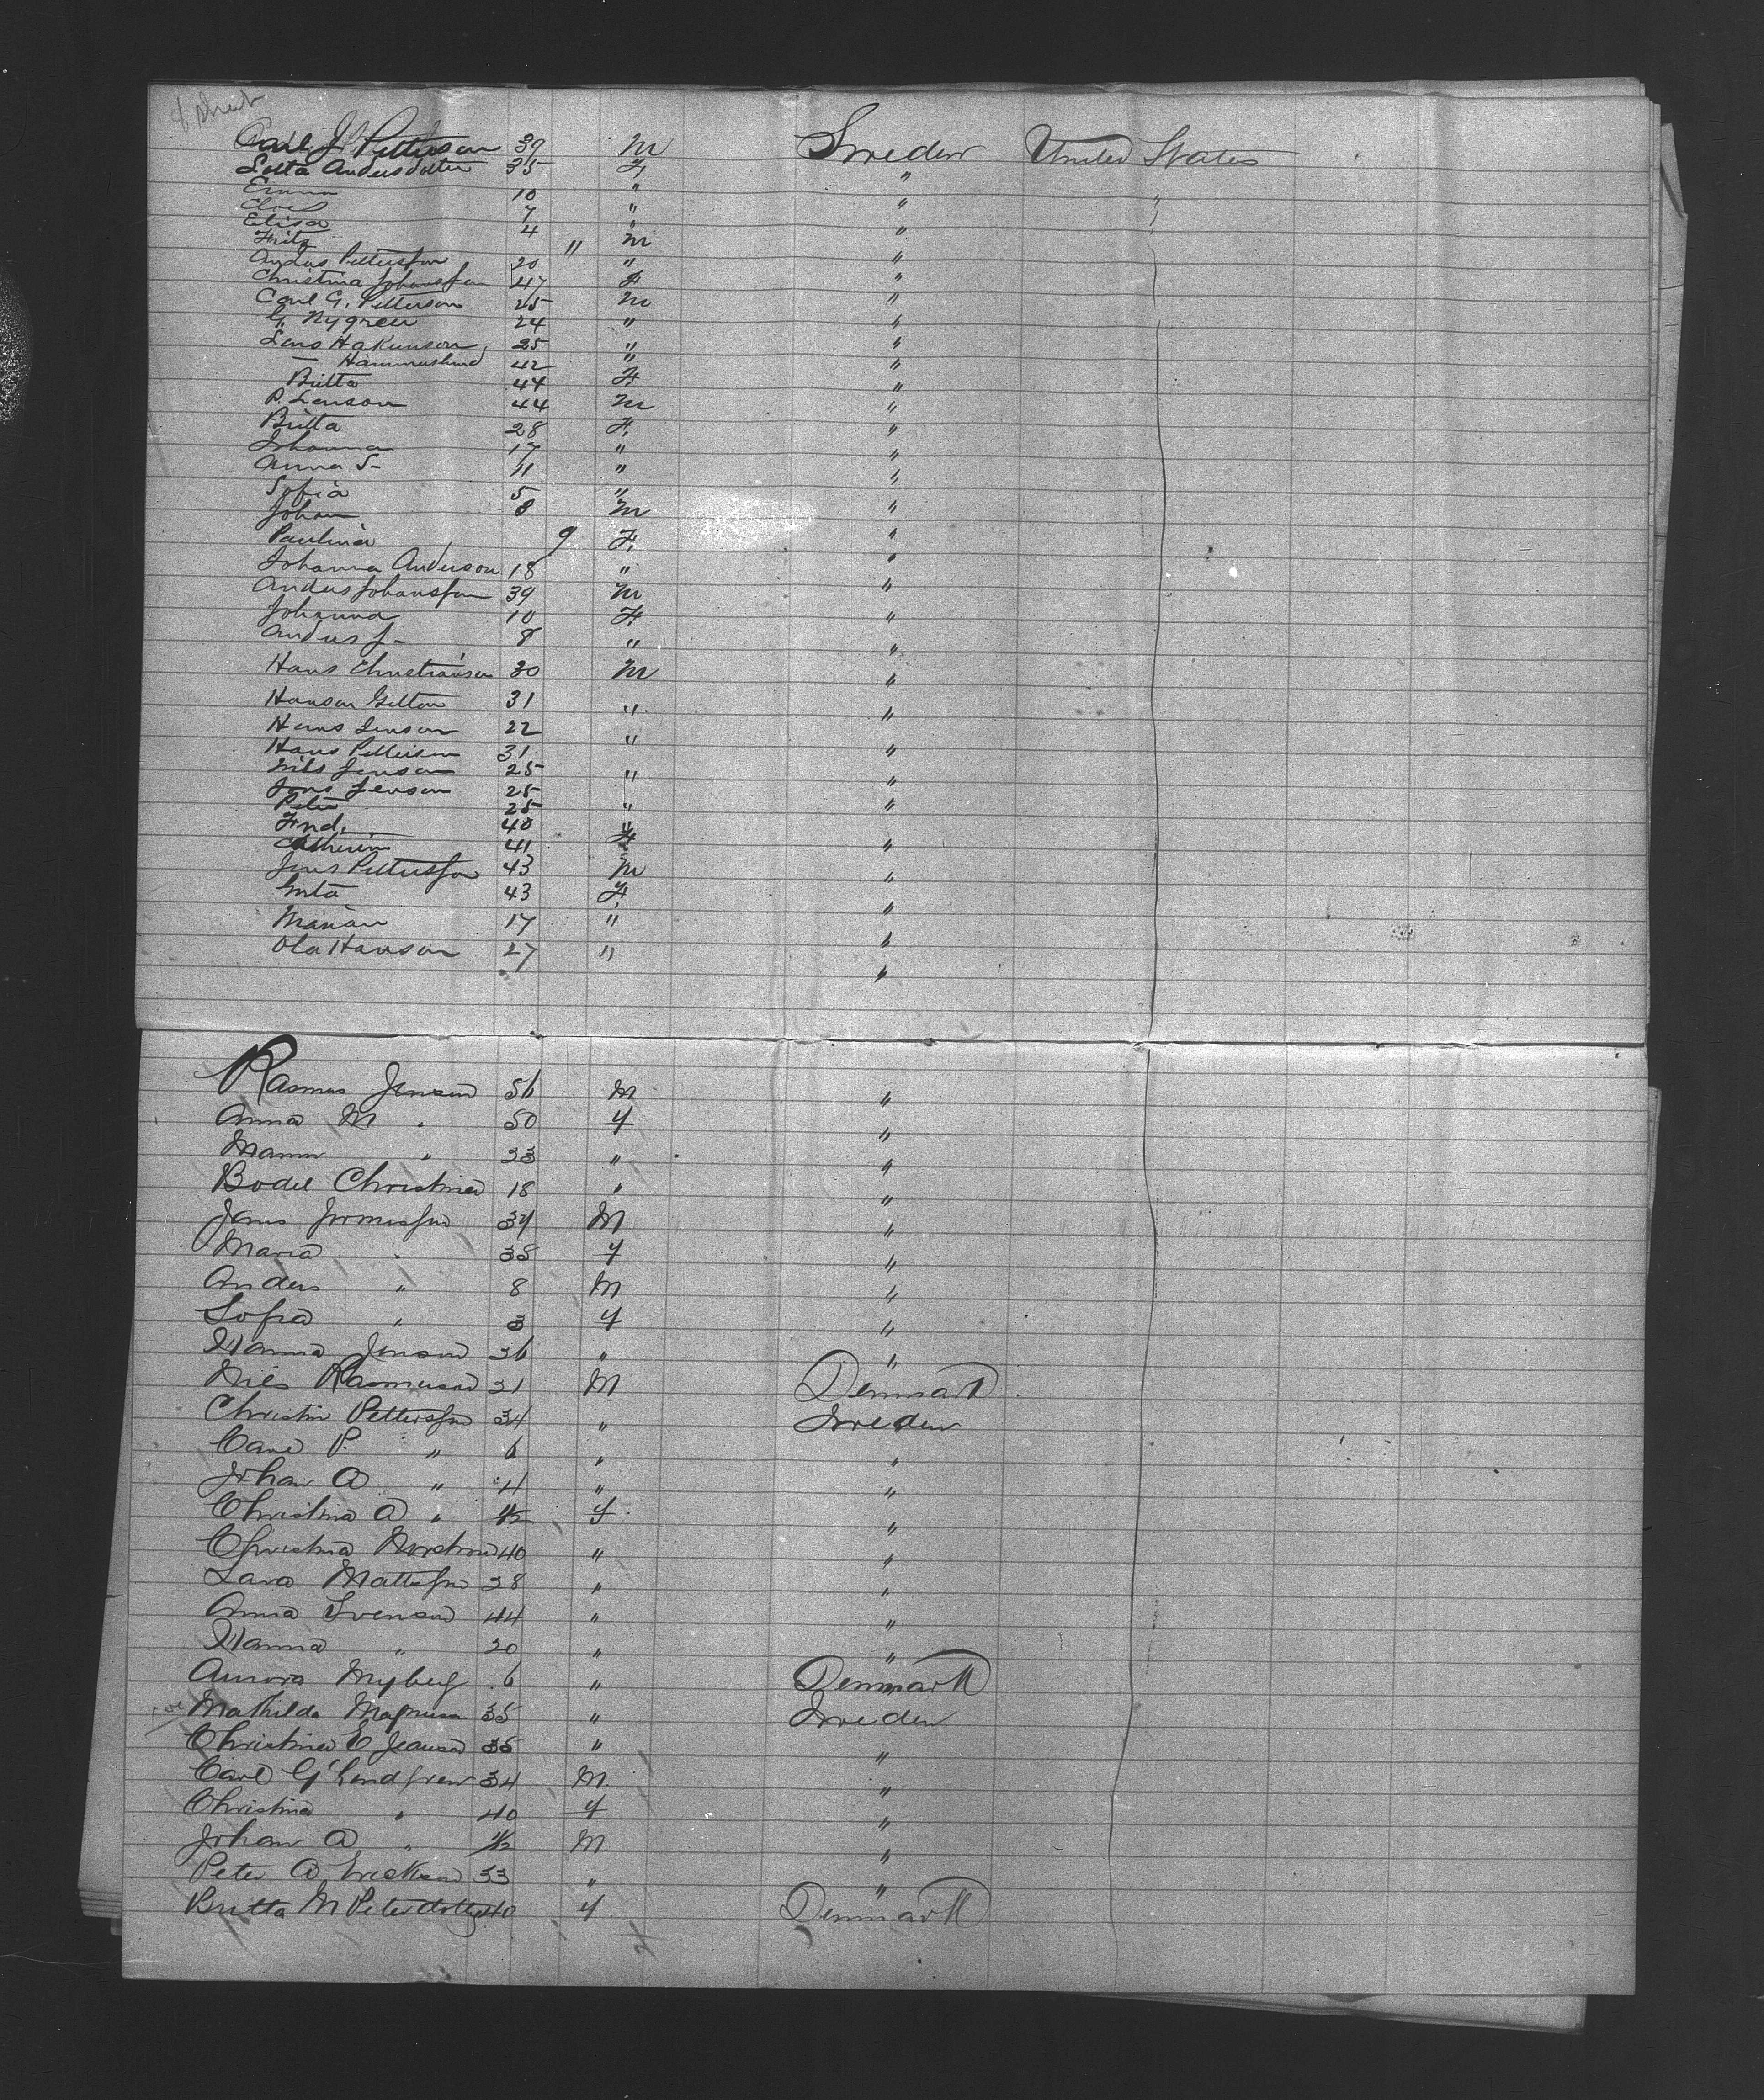 Carl J Petterson 39 M Sweden United States
Lotta Andersdotter 35 F "
Emma 10 " " "
7 " "
Elisa 4 " "
Fritz " M "
Anders Pettersson 20 " "
Christina Johansson 47 F "
Carl G. Petterson 25 M "
G. Nygren 24 " "
Lars Hakunson 25 " "
— Hammerlund 42 " "
Britta 44 F "
P. Lenson 44 M "
Britta 28 F. "
Johanna 17 " "
Anna S- 11 " "
Sofia 5 " "
Johan 8 M "
Paulina 9 F. "
Johanna Anderson 18 " "
Anders Johansson 39 M "
Johanna 10 F "
Anders J- 8 " "
Hans Christianson 30 M "
Hanson 31 " "
Hans Jenson 22 " "
Hans Petterson 31 "
Nils Jenson 25 " "
Jons Jenson 25 "
Peter 25 "
Fred. 40 "
Catherin 41 F "
Jens Pettersson 43 M "
43 F "
17 " "
Ola Hanson 27 " "
Rasmus Jenson 56 M "
Anna M " 50 F "
" 23 " "
Bodel Christina 18 " "
Jons 34 M "
Maria " 38 F "
Anders " 8 M "
Sofia " 3 F "
Hanna Jenson 36 " "
Nils Rasmuson 21 M Denmark
Christin Pettersson 34 " Sweden
Carl P. " 6 " "
Johan A " 4 " "
Christina A " F "
Christina 40 " "
Lars Mattsson 28 " "
Anna Svenson 44 " "
Hanna " 20 " "
Aurora Myberg 6 " Denmark
Mathilda Magnuson 35 " Sweden
Christina E 35 " "
Carl G Lendgren 34 M. "
Christina " 40 F "
Johan A " M "
Peter A Erickson 33 " "
Britta M Peterdotter 40 F Denmark